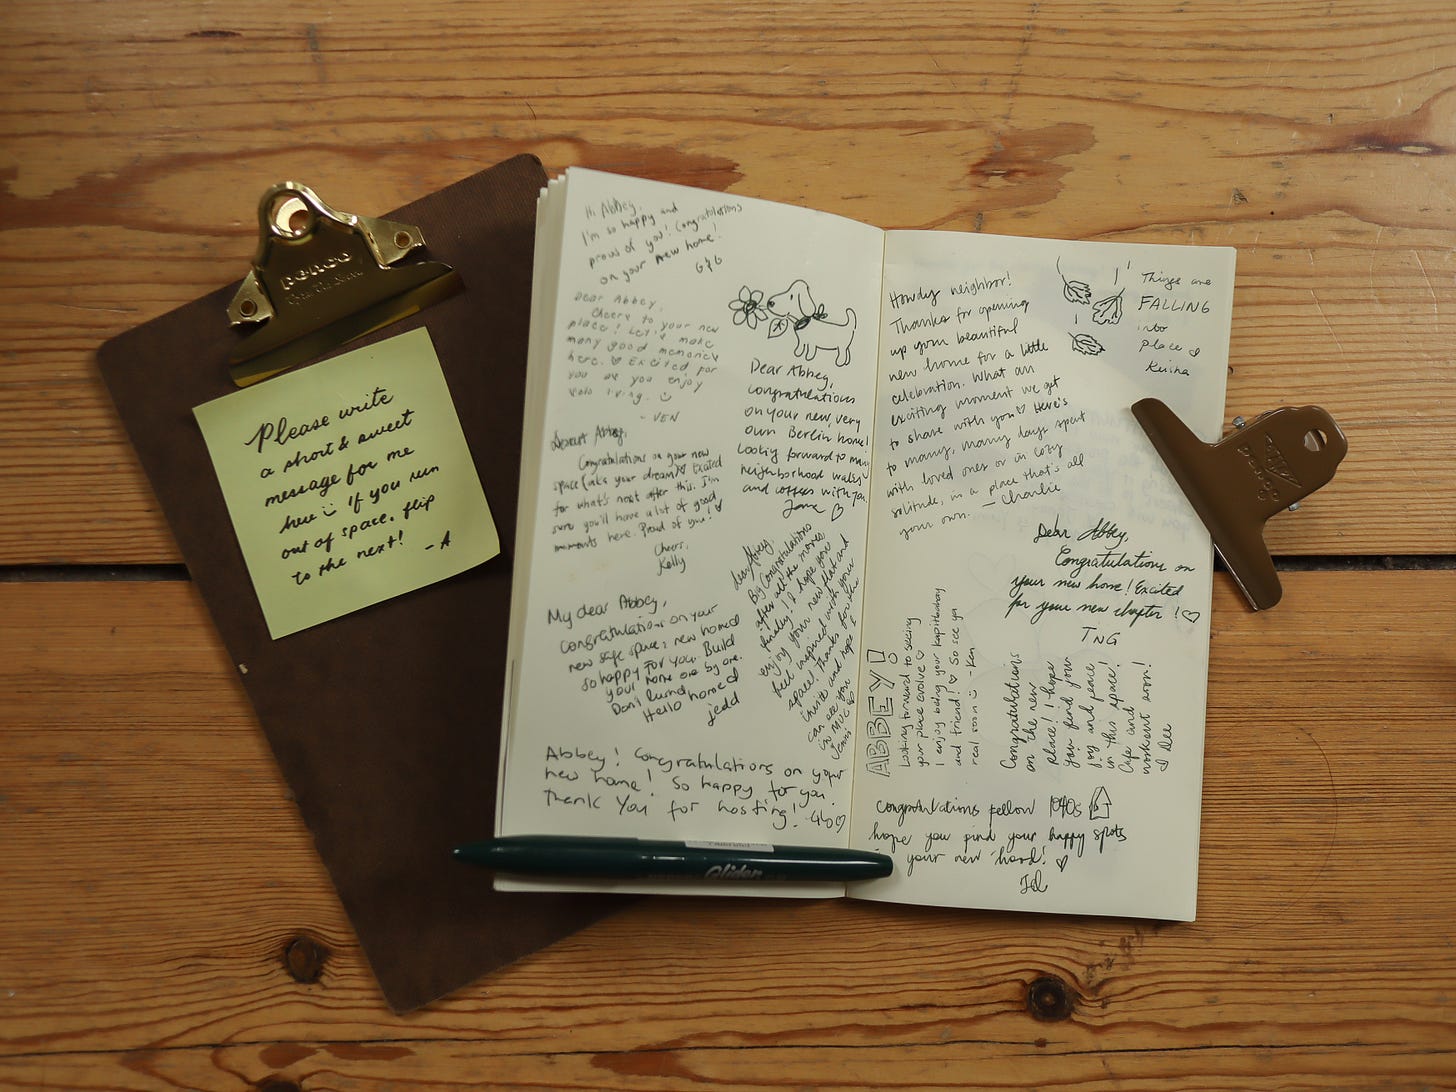 penco
Please write
a short & sweet
message for me
here if you run
out of space, flip
to the next!
- A
Hi Abbey,
I'm so happy and
proud of you! Congratulations
on your new home!
G&G
Dear Abbey,
Cheers to your new
place! Let's make
many good memories
here. Excited for
you as you enjoy
solo living.
- VEN
Dearest Abbey,
Congratulations on your new
space (aka your dream)! Excited
for what's next after this. I'm
sure you'll have a lot of good
moments here. Proud of you!
Cheers,
Kelly
My dear Abbey,
Congratulations on your
new safe space, new home!
So happy for you. Build
your home one by one.
Don't
Hello home!
jedd
Abbey! Congratulations on your
new home! So happy for you.
Thank you for hosting!
Dear Abbey,
congratulations
on your new, very
own Berlin home!
Looking forward to many
neighborhood walks
and coffees with you,
Jane
dear Abbey,
Big Congratulations
after all the moves,
finally! I hope you
enjoy your new flat and
feel inspired with your
space. Thanks for the
invite and hope I
can see you
in MUC
Howdy neighbor!
Thanks for opening
up your beautiful
new home for a little
celebration. What an
exciting moment we get
to share with you Here's
to many, many days spent
with loved ones or in cozy
solitude, in a place that's all
your own. - Charlie
Things are
FALLING
into
place
Keisha
Dear Abbey,
Congratulations on
your new home! Excited
for your new chapter!
TNG
ABBEY!
Looking forward to seeing
your place evolve
I enjoy being your kapitbahay
and friend! So see ya
real soon - Ken
Congratulations
on the new
place! I hope
you find your
joy and peace
in this space!
Cafe and
workout soon!
Dee
Congratulations fellow 1040s
hope you find your happy spots
your new 'hood!
Glider
penco